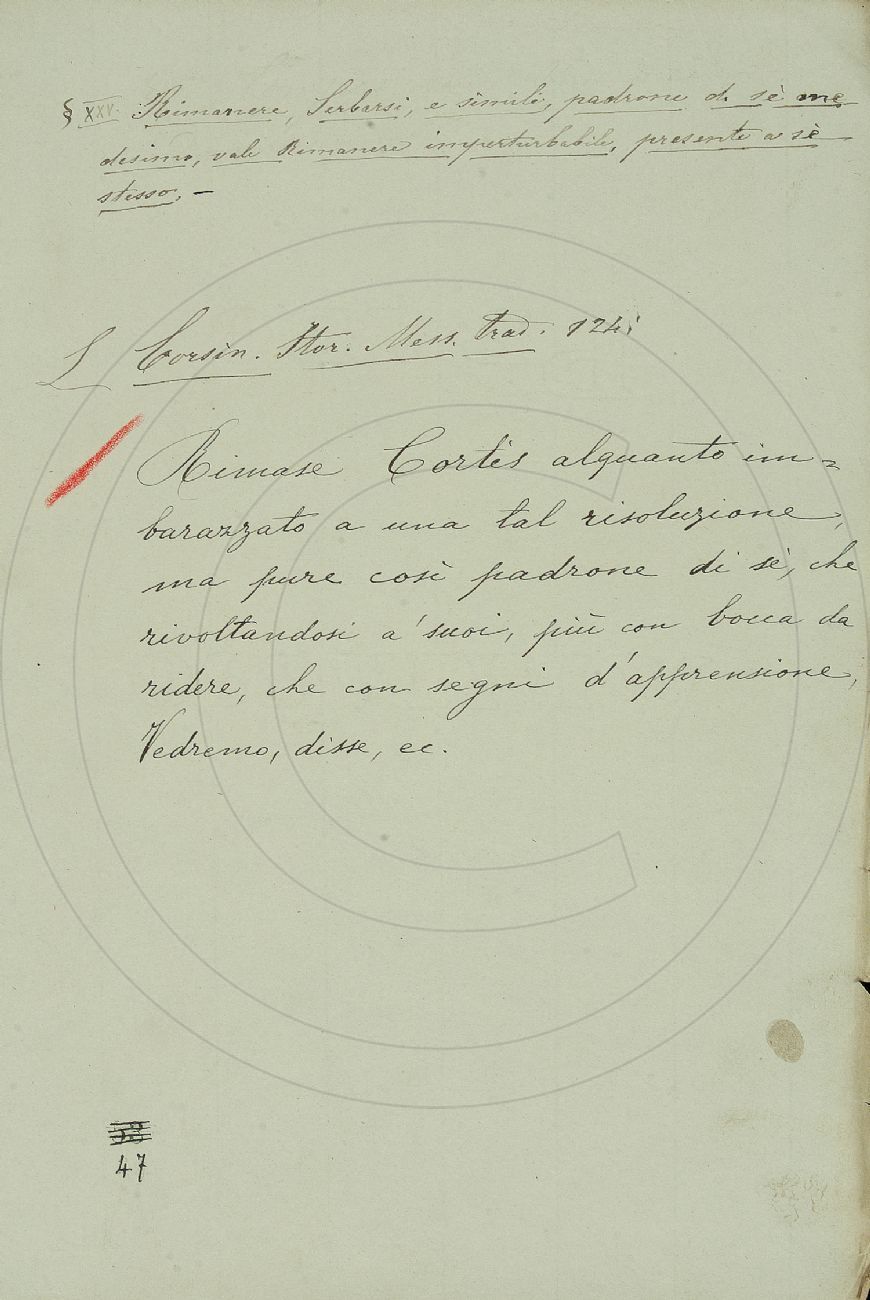 § XXV. Rimanere, Serbarsi, e simili, padrone di sè me
desimo, vale Rimanere imperturbabile, presente a sè
stesso. –
L Corsin. Stor. Mess. trad. 124:
Rimase Cortès alquanto im=
barazzato a una tal risoluzione,
ma pure così padrone di sè, che
rivoltandosi a' suoi, più con bocca da
ridere, che con segni d'apprensione,
Vedremo, disse, ec.
53
47